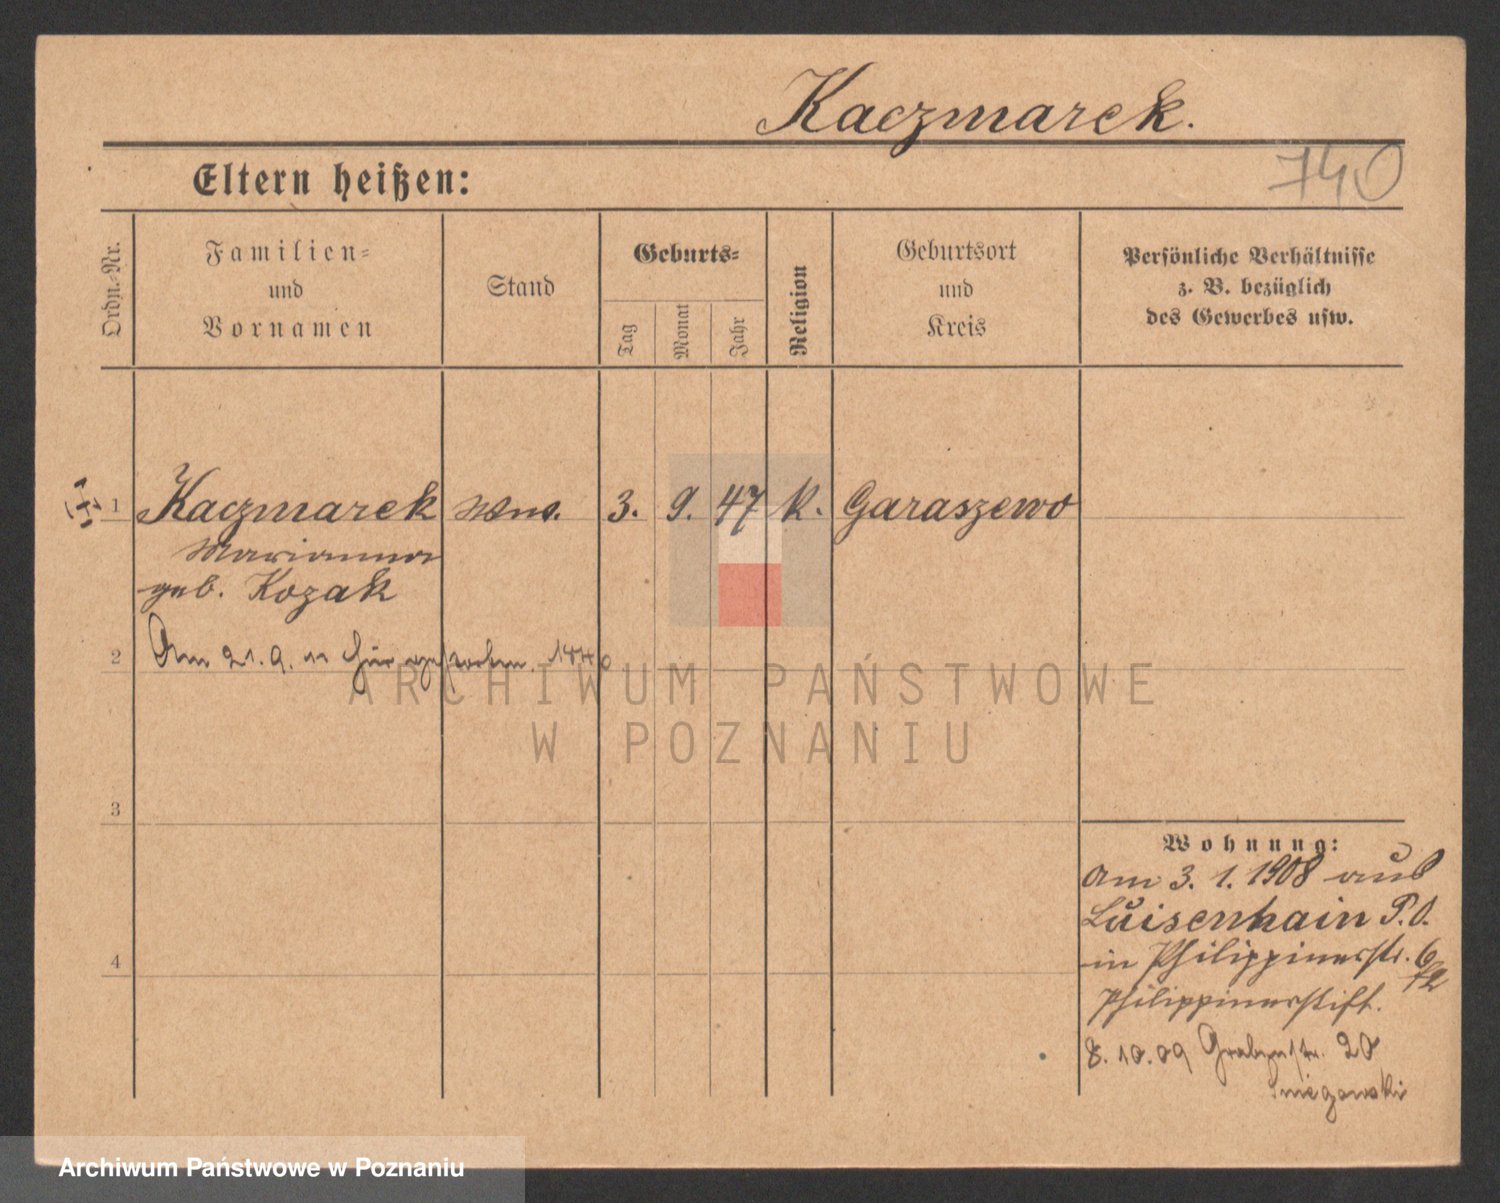 Kaczmarek.
740
Eltern heißen:
Ordn.-Nr.
Familien-
und
Vornamen
Stand
Geburts-
Tag
Monat
Jahr
Religion
Geburtsort
und
Kreis
Persönliche Verhältnisse
z. B. bezüglich
des Gewerbes usw.
1 Kaczmarek Wwe. 3. 9. 47 k. Garaszewo
Marianna
geb. Kozak
2 Am 21. 9. 11 hier gestorben.
ARCHIWUM PAŃSTWOWE
W POZNANIU
3
Wohnung:
Am 3. 1. 1908 aus
Luisenhain P. O.
in Philippinerstr. 6
Philippinerstift.
4
8. 10. 09 Grabenstr. 20
Archiwum Państwowe w Poznaniu